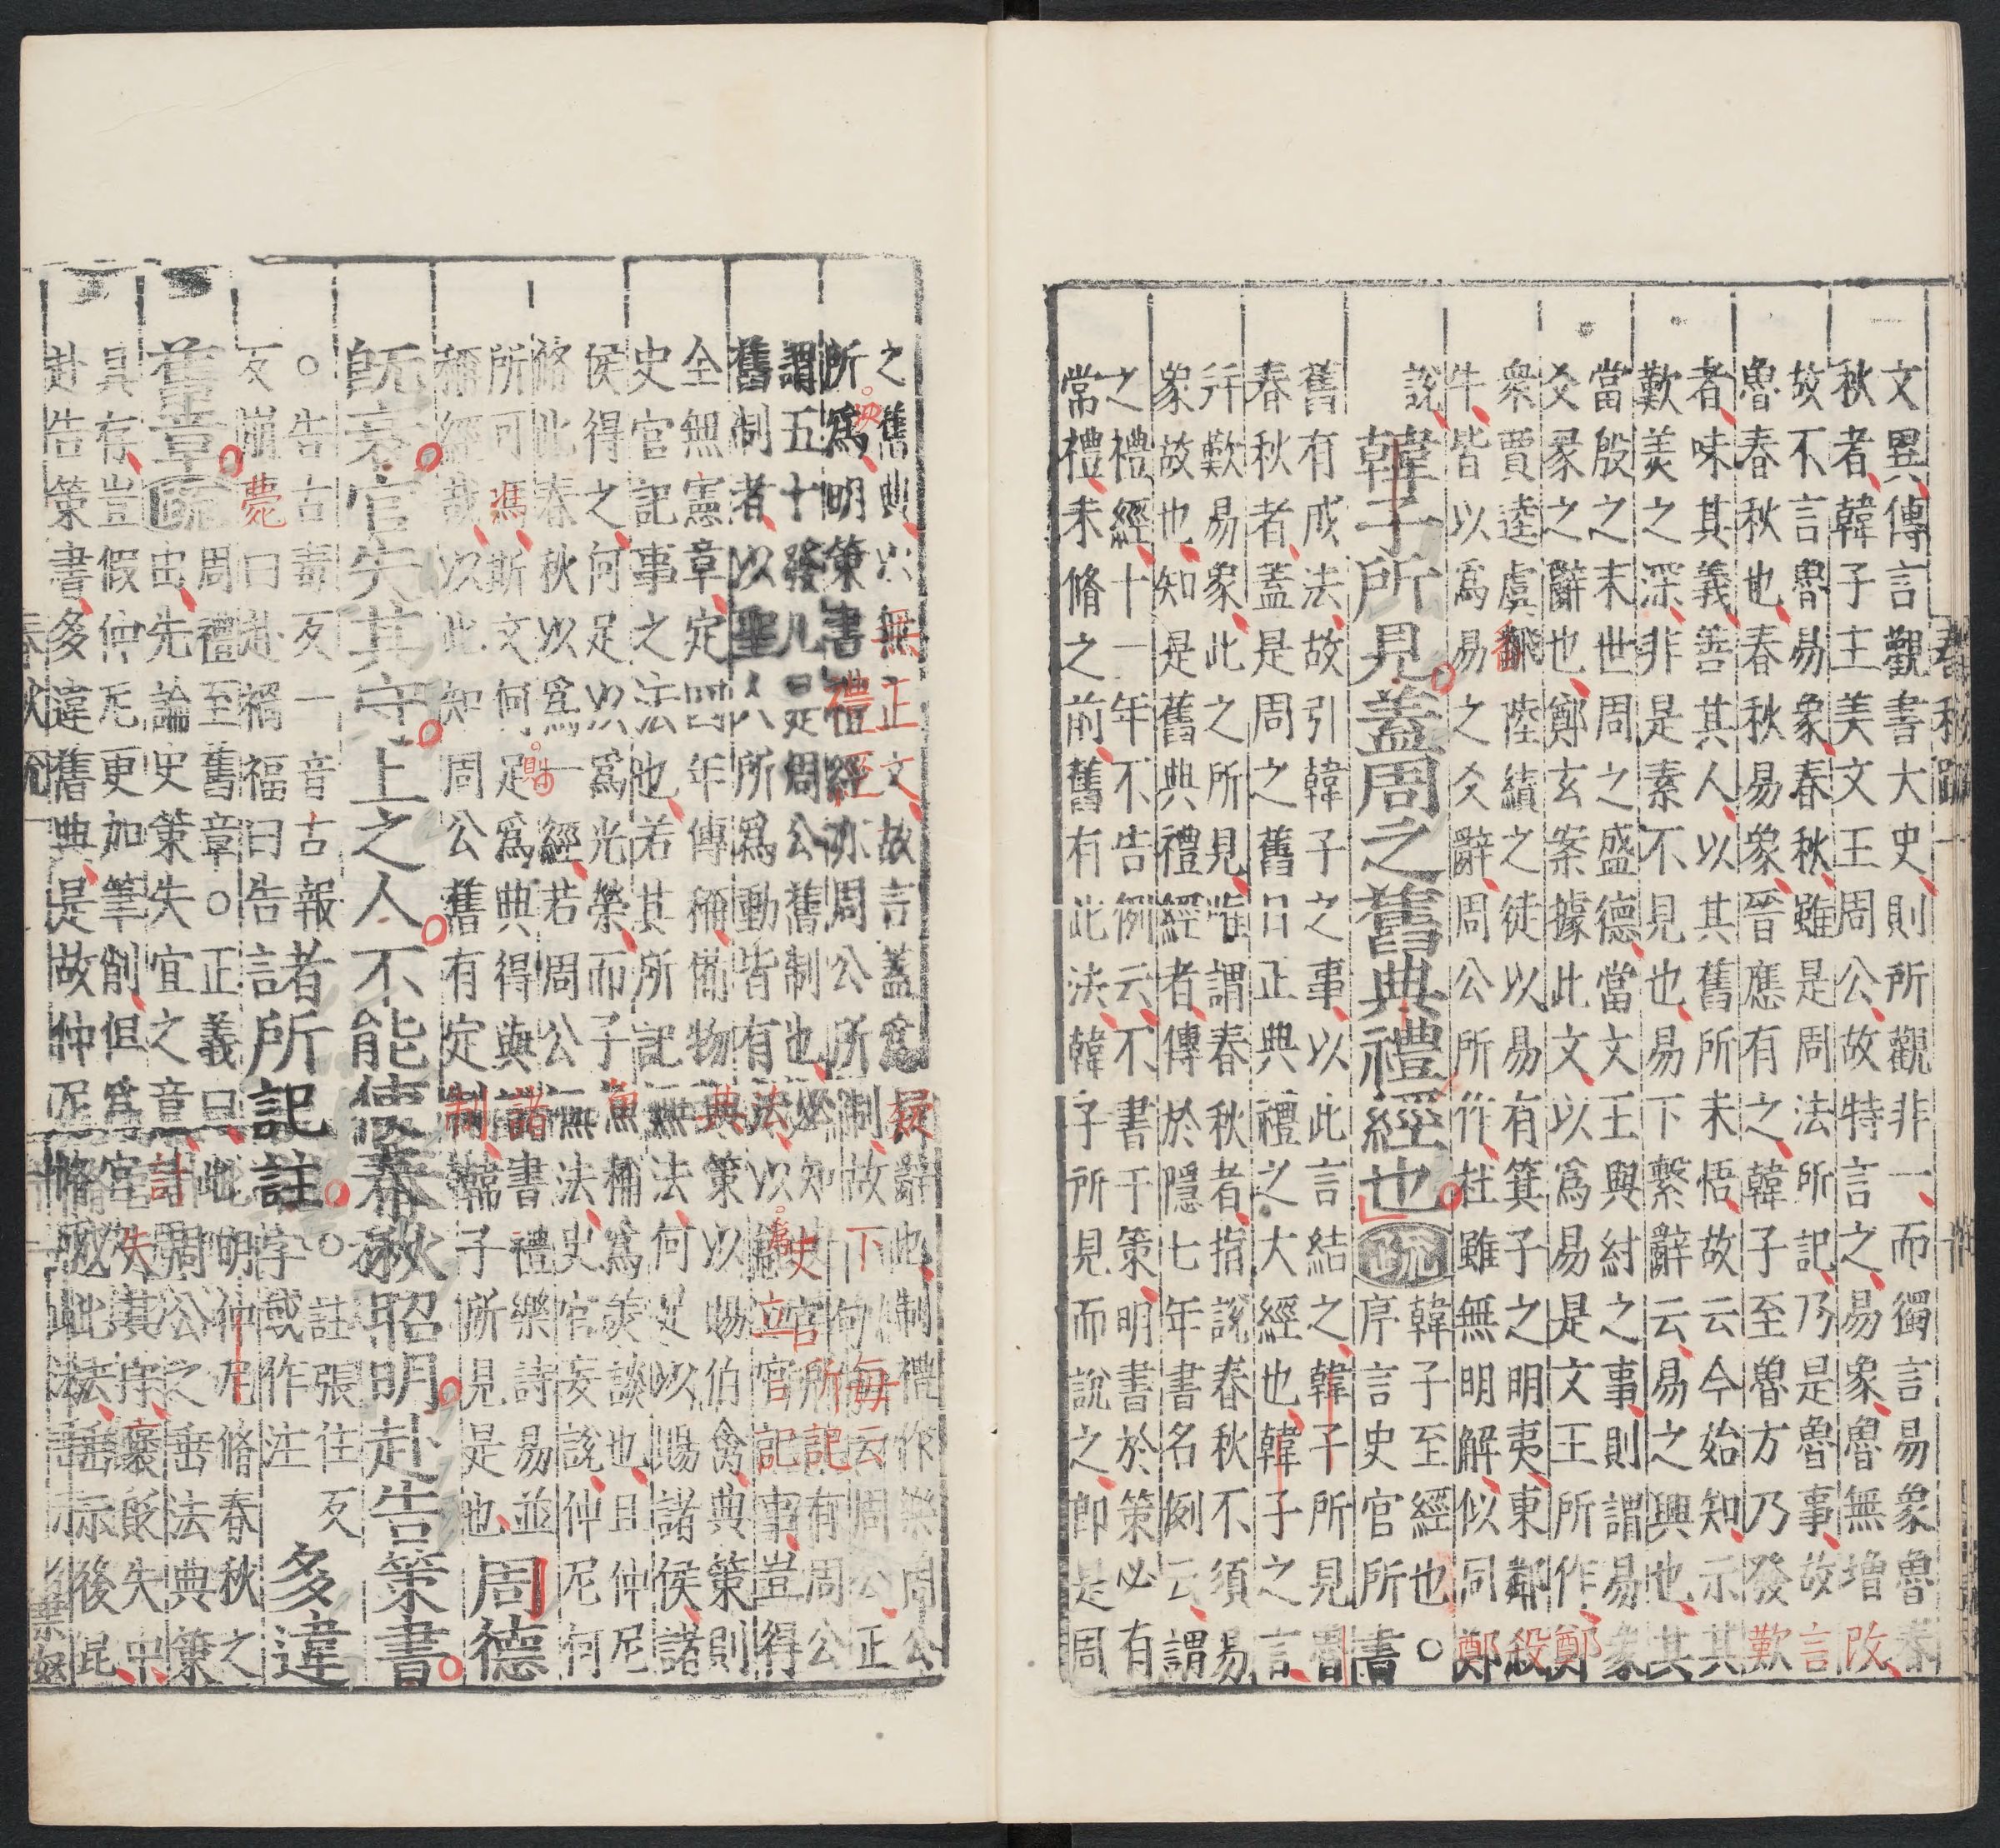 春秋疏
文異傳言觀書大史則所觀非一而獨言易象魯春
秋者韓子主美文王周公故特言之易象魯無增改
故不言魯易象春秋雖是周法所記乃是魯事故言
魯春秋也春秋易象晉應有之韓子至魯方乃發歎
者味其義善其人以其舊所未悟故云今始知示其
歎美之深非是素不見也易下繫辭云易之興也其
當殷之末世周之盛德當文王與紂之事則謂易象
爻彖之辭也鄭玄案據此文以爲易是文王所作鄭
衆賈逵虞翻陸績之徒以易有箕子之明夷東鄰殺
牛皆以爲易之爻辭周公所作杜雖無明解似同鄭
說
韓子所見蓋周之舊典禮經也疏
韓子至經也○
序言史官所書
舊有成法故引韓子之事以此言結之韓子所見魯
春秋者蓋是周之舊日正典禮之大經也韓子之言
并歎易象此之所見唯謂春秋者指說春秋不須易
象故也知是舊典禮經者傳於隱七年書名例云謂
之禮經十一年不告例云不書于策明書於策必有
常禮未脩之前舊有此法韓子所見而說之即是周
之舊典以無正文故言蓋爲疑辭也制禮作樂周公
所爲明策書禮經亦周公所制故下句每云周公正
謂五十發凡是周公舊制也必知史官所記有周公
舊制者以聖人所爲動皆有法以能立官記事豈得
全無憲章定四年傳稱備物典策以賜伯禽典策則
史官記事之法也若其所記無法何足以賜諸侯諸
侯得之何足以爲光榮而子魚稱爲美談也且仲尼
脩此春秋以爲一經若周公無法史官妄說仲尼何
所可馮斯文何足爲典得與諸書禮樂詩易並
稱經哉以此知周公舊有定制韓子所見是也
周德
既衰官失其守上之人不能使春秋昭明赴告策書
○告古毒反一音古報
反崩薨曰赴禍福曰告
諸所記註
○註張住反
字或作注
多違
舊章疏
周禮至舊章○正義曰此明仲尼脩春秋之
出先論史策失宜之章計周公之垂法典策
具存豈假仲尼更加筆削但爲官失其序褒貶失中
赴告策書多違舊典是故仲尼脩成此法垂示後昆
春秋疏一